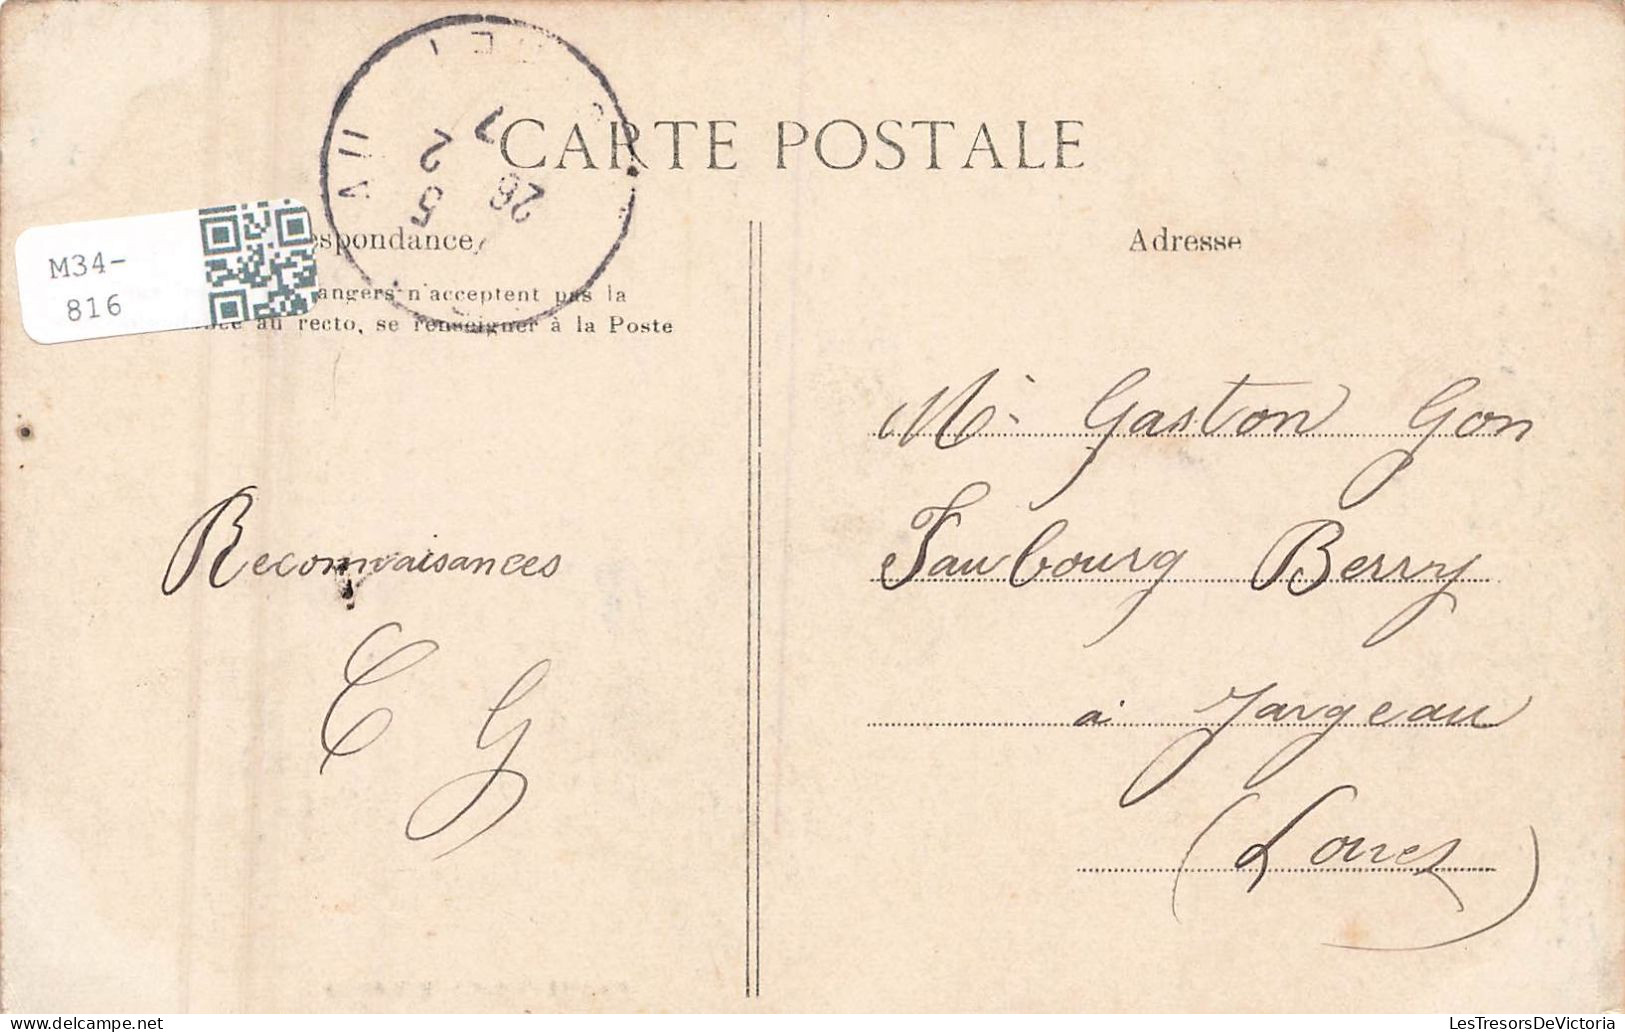 CARTE POSTALE
espondance
Adresse
angers n'acceptent pas la
au recto, se renseigner à la Poste
M34-
816
26
5 2
Mr Gaston Gon
Faubourg Berry
à Jargeau
(Loiret)
Reconnaisances
C G
LesTresorsDeVictoria